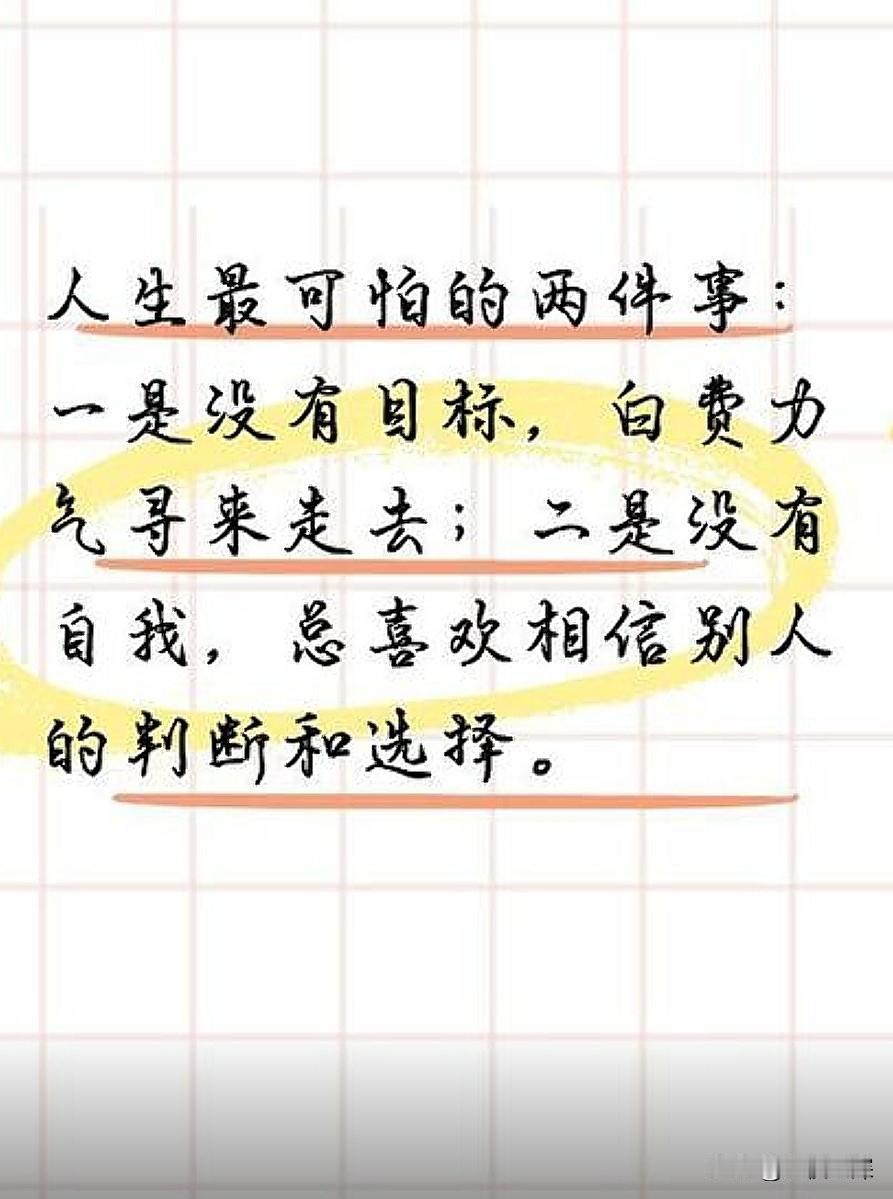 人生最可怕的两件事：
一是没有目标，白费力
气寻来走去；二是没有
自我，总喜欢相信别人
的判断和选择。